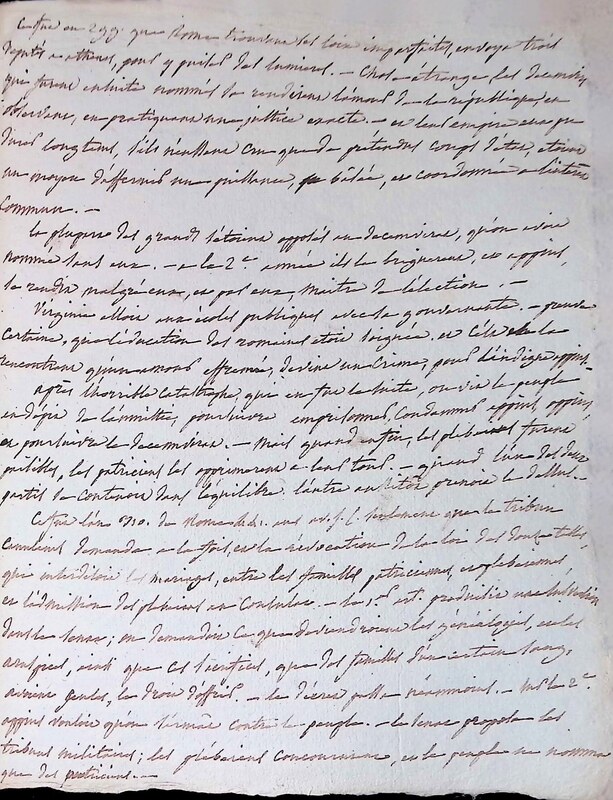 Ce fut en 299. que Rome trouvant ses loix imparfaites, envoya trois
députés a athenes, pour y puiser des lumieres. — Chose étrange, les decemvirs
qui furent ensuite nommés se rendirent l'amour de la république, en
en pratiquant une justice exacte. — et leur empire eut pu
durer longtems, s'ils n'eussent cru que de prétendus coups d'état, etoient
un moyen d'affermir une puissance, et coordonnée a l'interet
commun. —
la plupart des grands s'étoient opposés au decemvirat, qu'on avoit
nommé sans eux. — a la 2e. année ils le briguerent, et appius,
se rendit malgré eux, et par eux, maitre de l'élection. —
Virginie alloit aux écoles publiques avec sa gouvernante. — preuve
certaine, que l'éducation des romaines etoit soignée. et c'est la
rencontre qu'un amour effronté, devint un crime, pour l'indigne appius.
après l'horrible catastrophe, qui en fut la suite, on vit le peuple
en dépit de l'amnistie, poursuivre, emprisonner, condamner appius,
et poursuivre les decemvirs. — Mais quand enfin, les plébeiens furent
paisibles, les patriciens les opprimerent a leur tour. — quand l'un des deux
partis se contenoit dans l'équilibre l'autre prenoit le dessus. —
Ce fut l'an 310. de Rome av. J. C. seulement que le tribun
Canuleius demanda a la fois, et la révocation de la loi des douze tables,
qui interdisoit les mariages, entre les familles patriciennes, et plebeiennes,
et l'admission des plébeiens au Consulat. — le 1er. art. produisit une
dans le senat; on demandoit ce que deviendroient les généalogies, et les
auspices, ainsi que les sacrifices, que des familles d'un certain sang,
avoient seules, le droit d'offrir. — le décret passa néanmoins. — sur le 2e.
appius vouloit qu'on s'armat contre le peuple. — le senat proposa les
tribuns militaires; les plébeiens concoururent, et le peuple ne nomma
que des patriciens. —